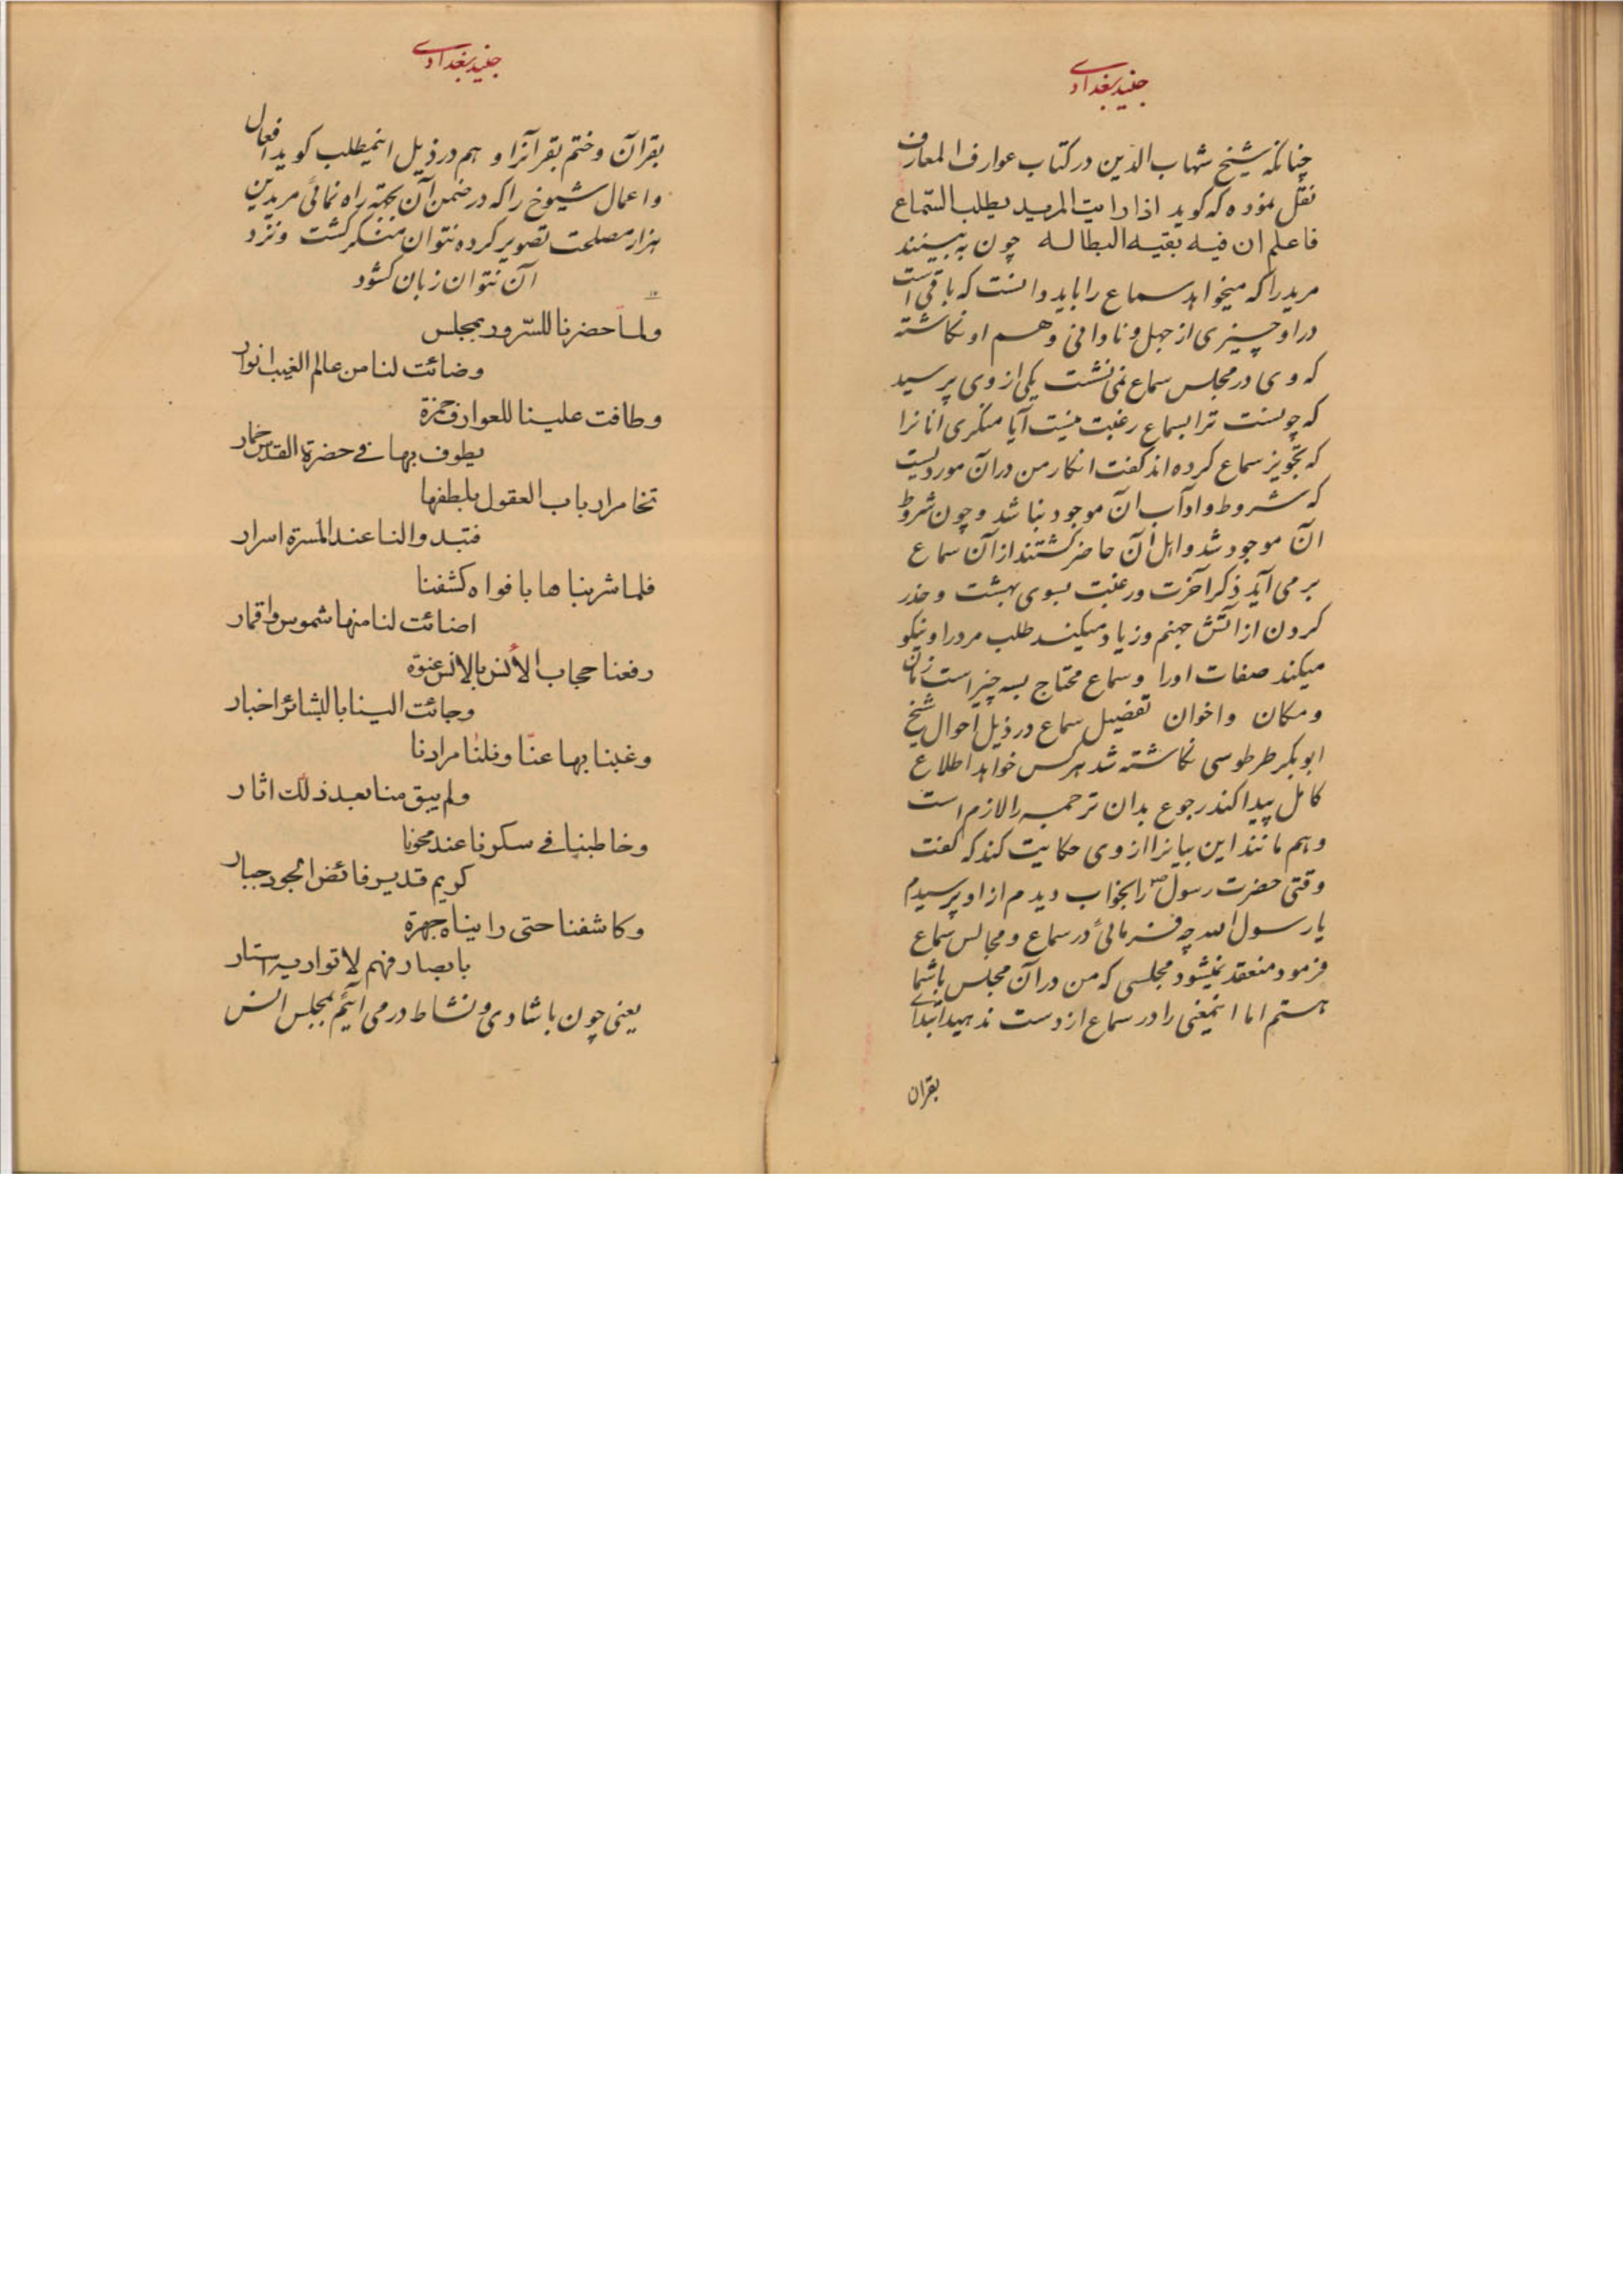 جنید بغدادی
چنانکه شیخ شهاب الدین در کتاب عوارف المعارف
نقل نموده که کوید اذا رایت المرید یطلب السّماع
فاعلم ان فیه بقیه البطاله چون به بینند
مرید را که میخواهد سماع را باید دانست که باقی است
در او چیزی از جهل و نادانی و هم او نکاشته
که وی در مجلس سماع نمی نشست یکی از وی پرسید
که چونست ترا بسماع رغبت نیست آیا منکری انانرا
که تجویز سماع کرده اند کفت انکار من در آن موردیست
که شروط و آداب ان موجود نباشد و چون شروط
ان موجود شد و اهل آن حاضر کشتند از آن سماع
بر می آید ذکر آخرت و رغبت بسوی بهشت و حذر
کردن از اتش جهنم و زیاد میکند طلب مرد را و نیکو
میکند صفات اورا و سماع محتاج بسه چیز است زمان
و مکان و اخوان تفضیل سماع در ذیل احوال شیخ
ابوبکر طرطوسی نکاشته شد هر کس خواهد اطلاع
کامل پیدا کند رجوع بدان ترجمه را لازم است
و هم مانند این بیانرا از وی حکایت کند که کفت
وقتی حضرت رسول ص را بخواب دیدم از او پرسیدم
یا رسول الله چه فرمائی در سماع و مجالس سماع
فرمود منعقد نمیشود مجلسی که من در آن مجلس با شما
هستم اما اینمعنی را در سماع از دست ندهید ابتدای
بقران
جنید بغدادی
بقرآن و ختم بقرآنرا و هم در ذیل اینمطلب کوید افعال
و اعمال شیوخ را که در ضمن آن بجهة راه نمائی مریدین
هزار مصلحت تصویر کرده نتوان منکر کشت و نزد
آن نتوان زبان کشود
ولمّا حضرنا للسّرور بمجلس
وضائت لنا من عالم الغیب انوار
وطافت علینا للعوارف خمزة
یطوف بها فی حضرة القدس خمار
تخامر ارباب العقول بلطفها
فتبدو النا عند المسرة اسرار
فلما شربناها بافواه کشفنا
اضائت لنا منها شموس واقمار
رفعنا حجاب الأنس بالانس عنوة
وجائت الینا بالبشائر اخبار
وغبنا بها عنّا ونلنا مرادنا
ولم یبق منا بعد ذلك اثار
وخاطبنا فی سکرنا عند محونا
کریم قدیر فائض الجود جبار
وکاشفنا حتی رایناه جهرة
بابصار فهم لا تواریه استار
یعنی چون با شادی و نشاط در می آئیم بمجلس انس